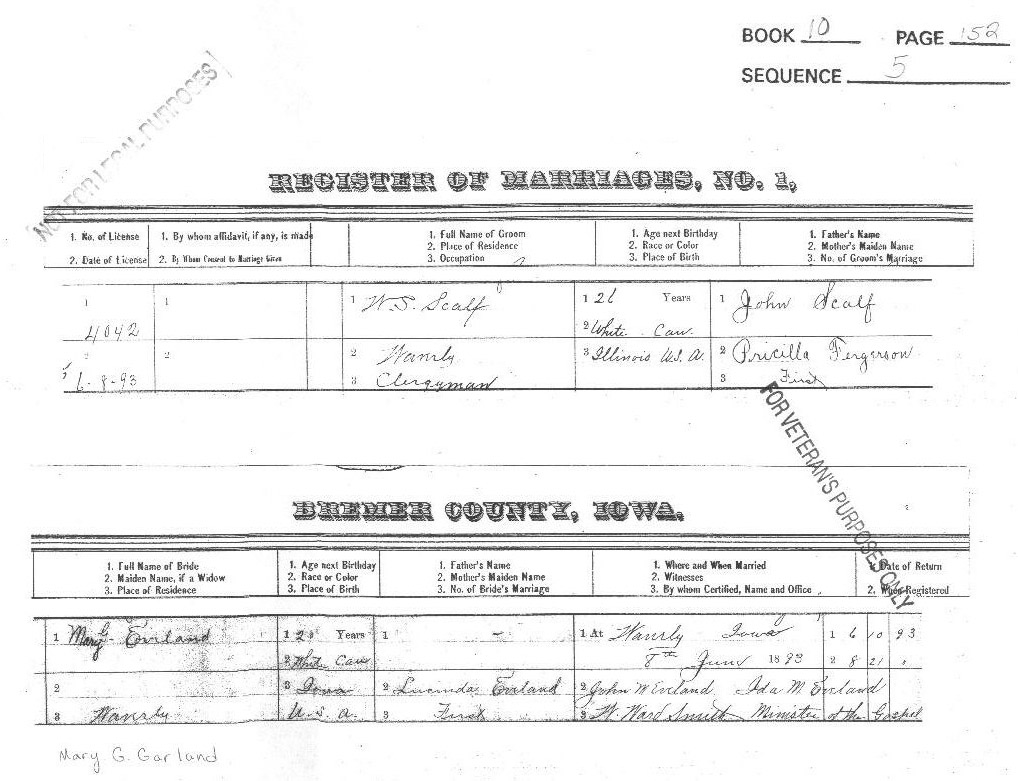 BOOK 10 PAGE 152
SEQUENCE 5
NOT FOR LEGAL PURPOSES
REGISTER OF MARRIAGES, NO. 1,
1. No. of License 1. By whom affidavit, if any, is made 1. Full Name of Groom 1. Age next Birthday 1. Father's Name
2. Place of Residence 2. Race or Color 2. Mother's Maiden Name
2. Date of License 2. By Whom Consent to Marriage Given 3. Occupation 3. Place of Birth 3. No. of Groom's Marriage
1 1 1 W. S. Scalf 1 26 Years 1 John Scalf
4042 2 White Cau.
2 2 2 Waverly 3 Illinois U.S.A. 2 Pricilla Fergerson
6-8-93 3 Clergyman 3 First
FOR VETERAN'S PURPOSES ONLY
BREMER COUNTY, IOWA.
1. Full Name of Bride 1. Age next Birthday 1. Father's Name 1. Where and When Married 1. Date of Return
2. Maiden Name, if a Widow 2. Race or Color 2. Mother's Maiden Name 2. Witnesses
3. Place of Residence 3. Place of Birth 3. No. of Bride's Marriage 3. By whom Certified, Name and Office 2. When Registered
1 Mary G. Eveland 1 20 Years 1 - 1 At Waverly Iowa 1 6 10 93
2 White Cau 8th June 1893 2 8 21 "
2 3 Iowa 2 Lucinda Eveland 2 John W Eveland Ida M Eveland
3 Waverly U.S.A. 3 First 3 W. Ward Smith Minister of the Gospel
Mary G. Garland